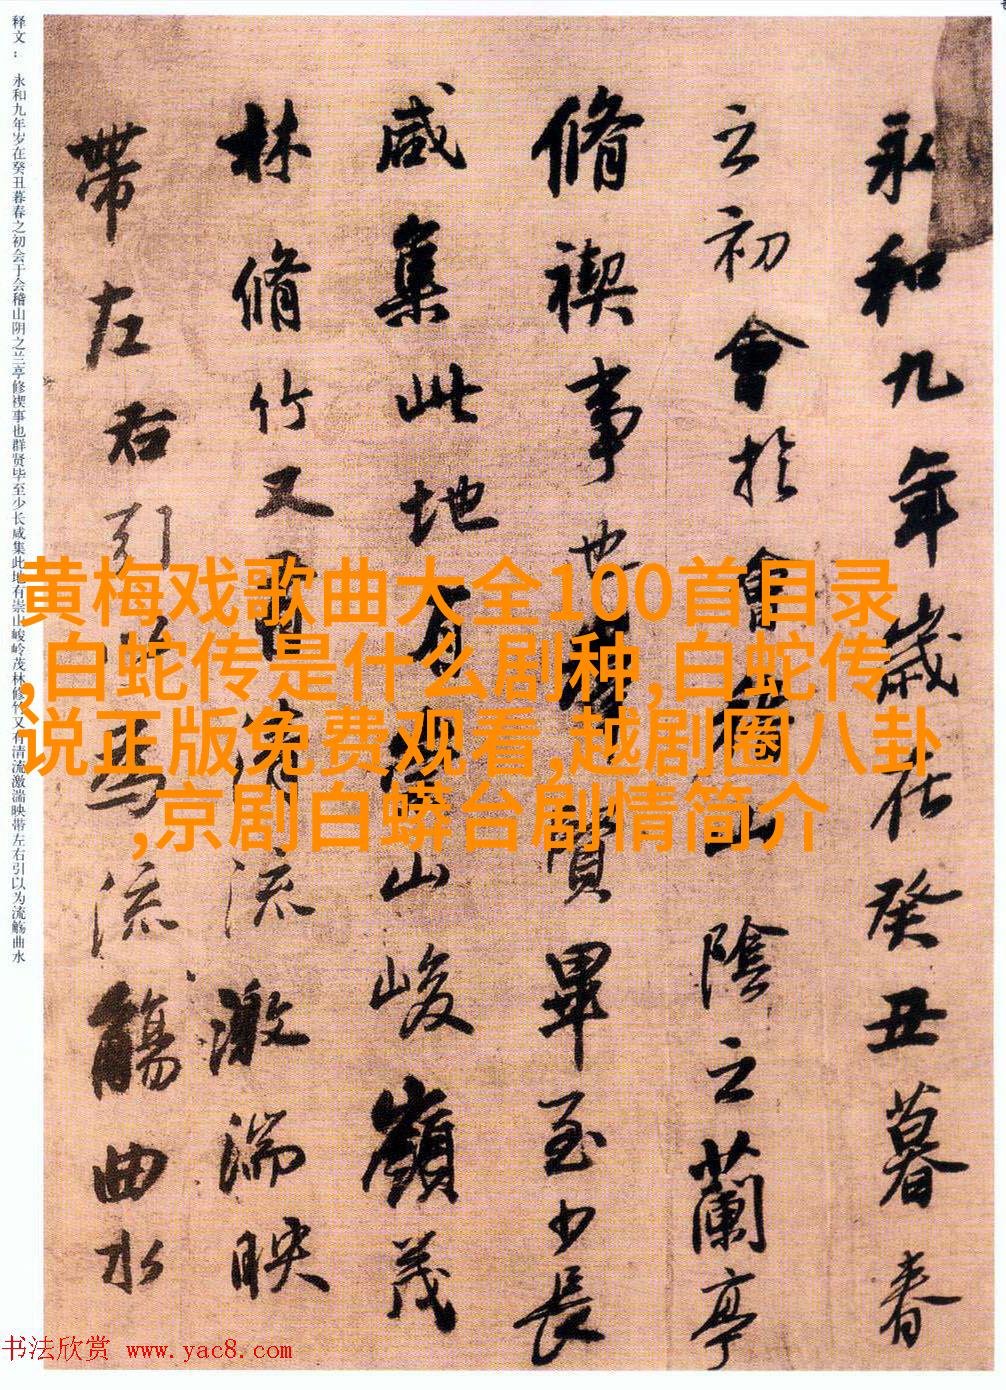 永和九年歲在癸丑暮春
之初會於會稽山陰之蘭亭
脩禊事也羣賢畢至少長
咸集此地有崇山峻嶺茂
林脩竹又有清流激湍映
帶左右引以為流觴曲水
释文： 永和九年岁在癸丑暮春之初会于会稽山阴之兰亭修禊事也群贤毕至少长咸集此地有崇山峻岭茂林修竹又有清流激湍映带左右引以为流觞曲水
黄梅戏歌曲大全100首目录
,白蛇传是什么剧种,白蛇传
说正版免费观看,越剧圈八卦
,京剧白蟒台剧情简介
书法欣赏 www.yac8.com